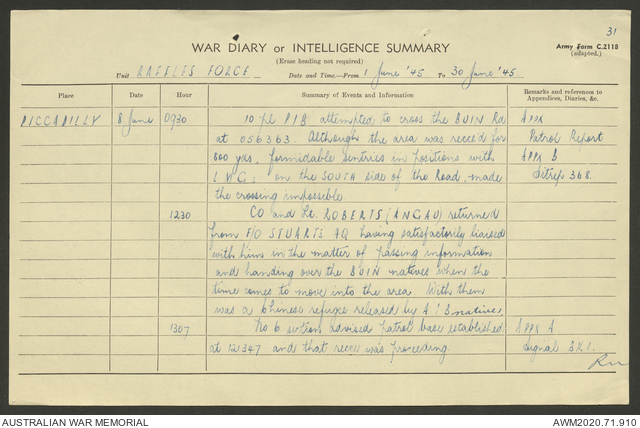 31
WAR DIARY or INTELLIGENCE SUMMARY
Army Form C.2118
(adapted.)
(Erase heading not required)
Unit RAFFLES FORCE Date and Time—From 1 June '45 To 30 June '45
Place Date Hour Summary of Events and Information Remarks and references to
Appendices, Diaries, &c.
PICCADILLY 8 June 0930 10 pl PIB attempted to cross the BUIN Rd Appx
at 056363. Although the area was recce'd for Patrol Report
800 yds, formidable sentries in positions with Appx B
LMGs on the SOUTH side of the Road, made Sitrep 368.
the crossing impossible.
1230 CO and Lt. ROBERTS (ANGAU) returned
from F/O STUARTS HQ having satisfactorily liaised
with him in the matter of passing information
and handing over the BUIN natives when the
time comes to move into the area. With them
was a Chinese refugee released by AIB natives.
1307 No 6 section advised patrol base established Appx A
at 121347 and that recce was proceeding. Signal BK1.
AUSTRALIAN WAR MEMORIAL AWM2020.71.910